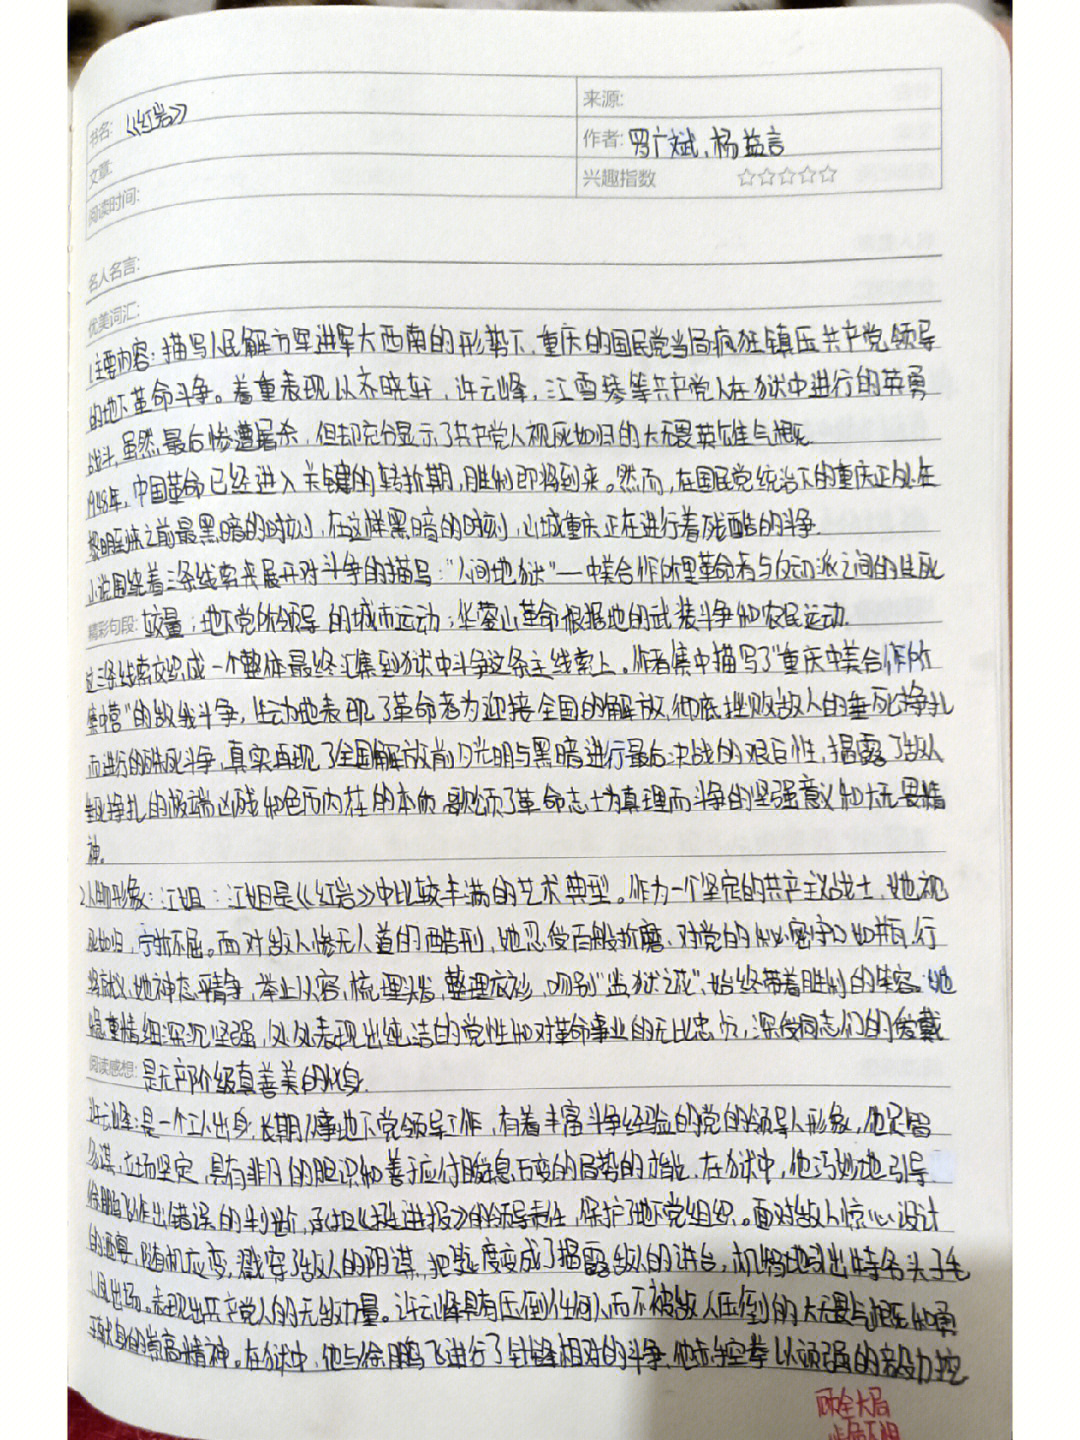 书名:《红岩》
来源:
作者:罗广斌、杨益言
文章:
兴趣指数 ☆☆☆☆☆
阅读时间:
名人名言:
优美词汇:
1主要内容:描写人民解方军进军大西南的形势下,重庆的国民党当局疯狂镇压共产党领导
的地下革命斗争。着重表现以齐晓轩,许云峰,江雪琴等共产党人在狱中进行的英勇
战斗,虽然最后惨遭屠杀,但却充分显示了共产党人视死如归的大无畏英雄气概.
1948年,中国革命已经进入关键的转折期,胜利即将到来。然而,在国民党统治下的重庆正处在
黎明到来之前最黑暗的时刻,在这样黑暗的时刻,山城重庆正在进行着残酷的斗争.
小说围绕着三条线索来展开对斗争的描写:"人间地狱"—中美合作所里革命者与反动派之间的生死
精彩句段:较量;地下党所领导的城市运动;华蓥山革命根据地的武装斗争和农民运动.
这三条线索交织成一个整体最终汇集到狱中斗争这条主线索上。作者集中描写了"重庆中美合作所
集中营"的敌我斗争,生动地表现了革命者为迎接全国的解放,彻底挫败敌人的垂死挣扎
而进行的殊死斗争,真实再现了全国解放前夕光明与黑暗进行最后决战的艰巨性,揭露了敌人
垂死挣扎的极端凶残和色厉内荏的本质,歌颂了革命志士为真理而斗争的坚强意义和大无畏精
神。
2人物形象:江姐:江姐是《红岩》中比较丰满的艺术典型。作为一个坚定的共产主义战士,她视
死如归,宁折不屈。面对敌人惨无人道的酷刑,她忍受百般折磨,对党的秘密守口如瓶,行
将就义,她神态平静,举止从容,梳理头发,整理衣衫,吻别"监狱之花",始终带着胜利的笑容。她
感情细深沉坚强,处处表现出纯洁的党性和对革命事业的无比忠贞,深受同志们的爱戴
阅读感想:是无产阶级真善美的化身.
许云峰:是一个工人出身,长期从事地下党领导工作,有着丰富斗争经验的党的领导人形象,他足智
多谋,立场坚定,具有非凡的胆识和善于应付瞬息百变的局势的才能.在狱中,他巧妙地引导
徐鹏飞作出错误的判断,承担《挺进报》的领导责任,保护了地下党组织。面对敌人惊心设计
的宴,随机应变,戳穿了敌人的阴谋,把宴席变成了揭露敌人的讲台,机智地引出特务头子毛
人凤出场。表现出共产党人的无敌力量。许云峰具有压倒任何人而不被敌人压倒的大无畏气概和勇
于献身的崇高精神。在狱中,他与徐鹏飞进行了针锋相对的斗争,他赤手空拳以顽强的毅力挖
顾全大局